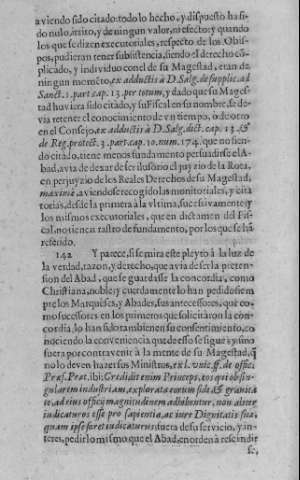 aviendo sido citado: todo lo hecho, y dispuesto ha si-
do nulo, irrito, y de ningun valor, ni efecto: y quando
los que se dizen executoriales, respecto de los Obis-
pos, pudieran tener subsistencia, siendo el derecho cõ-
plicado, y individuo con el de su Magestad, eran de
ningun momẽto, ex adductis à D. Salg. de supplic. ad
Sanct. 1. part. cap. 13. per totum, y dado que su Mages-
tad huviera sido citado, y su Fiscal en su nombre, se de-
via retener el conocimiento de vn tiempo, o de otro
en el Consejo, ex adductis à D. Salg. dict. cap. 13. &
de Reg. protect. 3. part. cap. 10. num. 174. que no sien-
do citado, tiene menos fundamento persuadirse el A-
bad, avia de dexar de ser ilusorio el juyzio de la Rota,
en perjuyzio de los Reales Derechos de su Magestad,
maximè, aviendose recogido las monitoriales, y cita
torias, desde la primera à la vltima, successivamente: y
los mismos executoriales, que en dictamen del Fis-
cal, no tienen rastro de fundamento, por los que se hã
referido.
142 Y parece, si se mira este pleyto à la luz de
la verdad, razon, y derecho, que avia de ser la preten-
sion del Abad, que se guardasse la concordia, como
Christiana, noble, y cuerdamente lo han pedido siem-
pre los Marqueses, y Abades, sus antecessores, que co-
mo sucessores en los primeros que solicitaron la con-
cordia, lo han sido tambien en su consentimiento, co
nociendo la conveniencia que de esso se sigue: y si no
fuera por contravenir à la mente de su Magestad, q̃
no lo deven hazer sus Ministros, ex l. unic. ff. de offic.
Præf. Præt. ibi: Credidit enim Princeps, eos qui ob sin-
gularem industriam, explorata eorum fide, & gravita
te, ad eius offitij magnitudinem adhibentur, non aliter
iudicaturos esse pro sapientia, ac iure Dignitatis suæ,
quam ipse foret iudicaturus: fuera de su servicio, y in-
teres, pedir lo mismo que el Abad, en orden à rescindir
se,